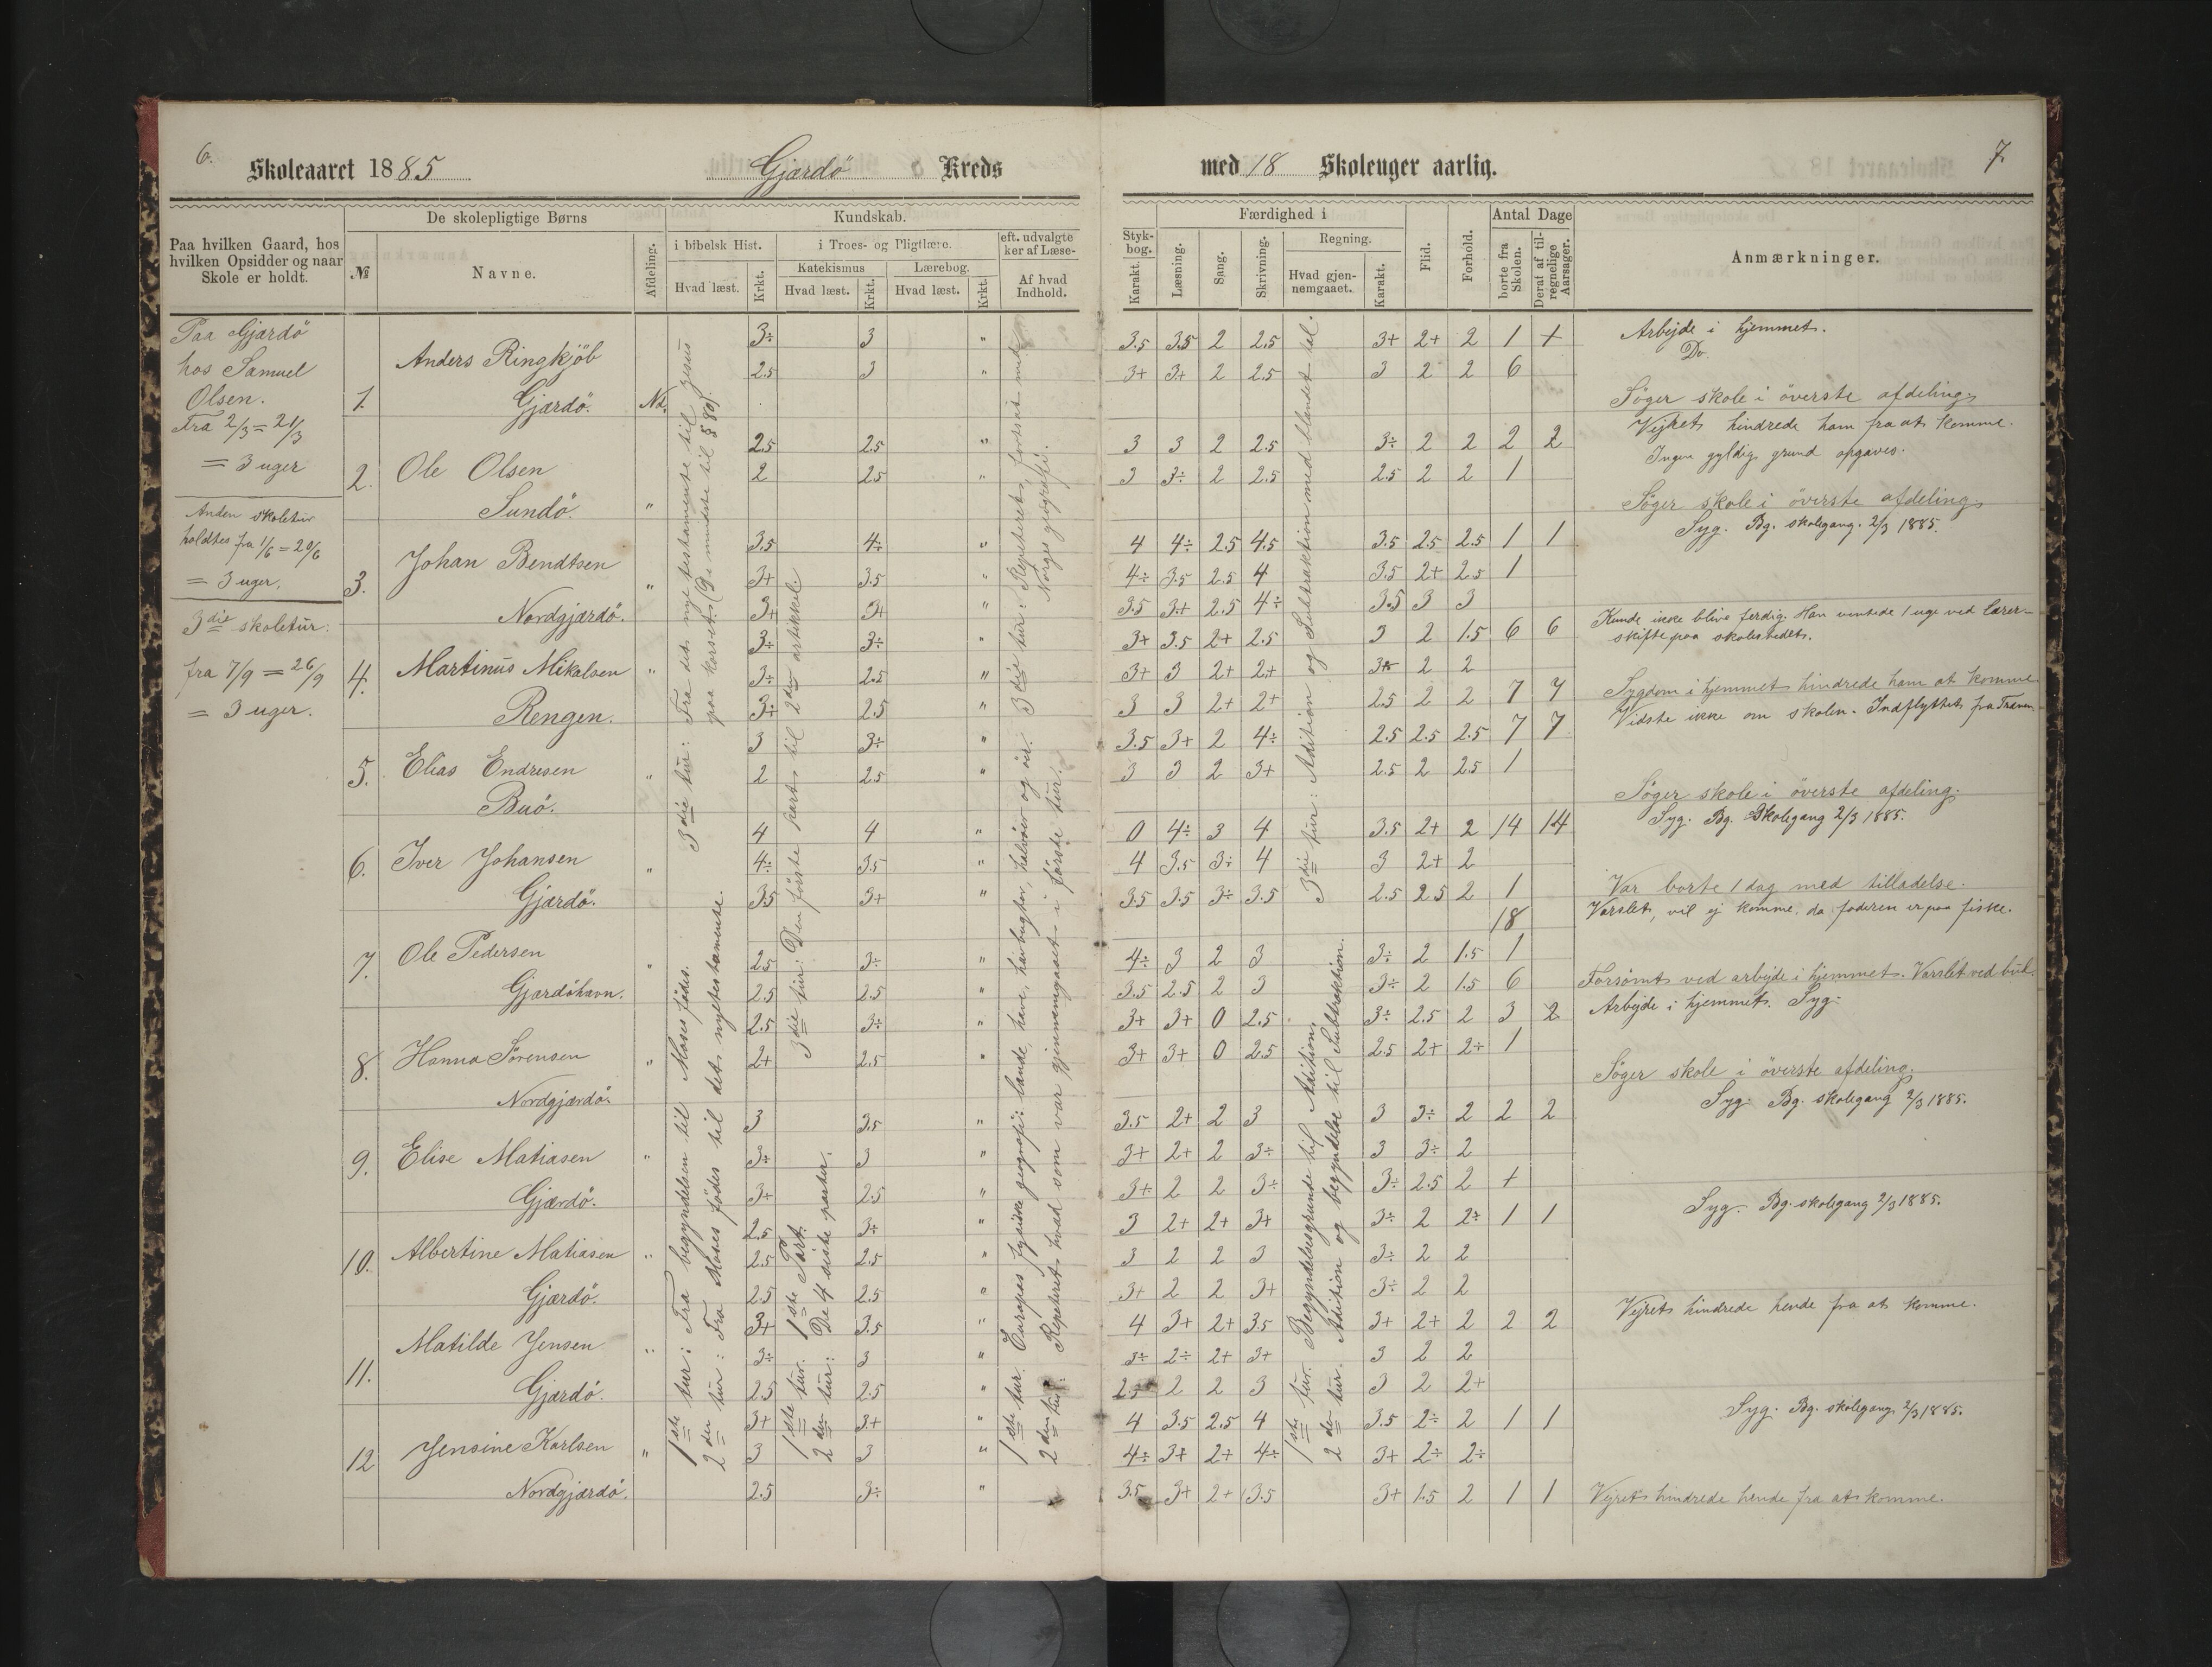 6.
Skoleaaret 1885
Gjærdö Kreds
Paa hvilken Gaard, hos hvilken Opsidder og naar Skole er holdt.
De skolepligtige Børns
№
Navne.
Afdeling.
Kundskab.
i bibelsk Hist.
Hvad læst.
Krkt.
i Troes- og Pligtlære.
Katekismus
Hvad læst.
Krkt.
Lærebog.
Hvad læst.
Krkt.
eft. udvalgte
ker af Læse-
Af hvad Indhold.
Paa Gjærdö
hos Samuel
Olsen.
Fra 2/3 = 21/3
= 3 uger
Anden skoletur
holdtes fra 1/6 = 20/6
= 3 uger.
3die skoletur.
fra 7/9 = 26/9
= 3 uger.
1. Anders Ringkjöb
Gjærdö. Nd.
2. Ole Olsen
Sundö. "
3. Johan Bendtsen
Nordgjærdö. "
4. Martinus Mikalsen "
Rengen.
5. Elias Endresen
Buö. "
6. Iver Johansen
Gjærdö. "
7. Ole Pedersen
Gjærdöhavn. "
8. Hanna Sörensen
Nordgjærdö. "
9. Elise Matiasen
Gjærdö. "
10. Albertine Matiasen
Gjærdö. "
11. Matilde Jensen
Gjærdö. "
12 Jensine Karlsen
Nordgjærdö. "
1ste tur: Fra begyndelsen til Moses födes.
2den tur: Fra Moses födes til det nytestamente.
3die tur: Fra det nye testamente til Jesus
paa korset.
1ste tur. 1ste Part.
2den tur: De 4 siste parter.
3die tur: Den förste part til 2den artikkel.
1ste tur. Europas fysiske geografi: lande, have, havbugter, halvöer og öer.
2den tur: Repeteret hvad som var gjennemgaaet i förste tur.
3die tur: Repeteret, fortsat med
Norges geografi.
3÷ 3 "
2.5 3 "
2.5 2.5 "
2 2.5 "
3.5 4÷ "
3+ 3.5 "
3+ 3+ "
3÷ 3÷ "
3÷ 2.5 "
3÷ 2.5 "
3 3÷ "
2 2.5 "
4 4 "
4÷ 3.5 "
3.5 3+ "
2.5 3÷ "
2.5 2.5 "
2.5 3÷ "
2+ 2.5 "
3 3.5 "
3÷ 3 "
3+ 2.5 "
2.5 3÷ "
2.5 2.5 "
2.5 2.5 "
3+ 3.5 "
3÷ 3 "
2.5 2.5 "
3+ 3+ "
3 3 "
2.5 3÷ "
med 18 Skoleuger aarlig.
7.
Styk-
bog.
Karakt.
Færdighed i
Læsning.
Sang.
Skrivning.
Regning.
Hvad gjen-
nemgaaet.
Karakt.
Flid.
Forhold.
Antal Dage
borte fra Skolen.
Deraf af til-
regnelige Aarsager.
Anmærkninger.
1ste tur. Begyndelsesgrunde til Adition.
2den tur. Adition og begyndelse til Subtraktion.
3die tur: Adition og Subtraktion med blendet tal.
3.5 3.5 2 2.5 3+ 2+ 2 1 + Arbejde i hjemmet.
3+ 3+ 2 2.5 3 2 2 6 Do.
Söger skole i överste afdeling
3 3 2 2.5 3÷ 2 2 2 2 Vejret hindrede ham fra at komme.
3 3÷ 2 2.5 2.5 2 2 1 Ingen gyldig grund opgaves.
Söger skole i överste afdeling.
4 4÷ 2.5 4.5 3.5 2.5 2.5 1 1 Syg. Bg. skolegang. 2/3 1885.
4÷ 3.5 2.5 4 3.5 2+ 2.5 1
3.5 3+ 2.5 4÷ 3.5 3 3
3+ 3.5 2+ 2.5 3 2 1.5 6 6 Kunde ikke blive ferdig. Han ventede 1 uge ved lærer-
skifte paa skolestedet.
3+ 3 2+ 2+ 2 2
3 3 2+ 2+ 2.5 2 2 7 7 Sygdom i hjemmet hindrede ham at komme
3.5 3+ 2 4÷ 2.5 2.5 2.5 7 7 Vidste ikke om skolen. Indflyttet fra Træen.
3 3 2 3+ 2.5 2 2.5 1
Söger skole i överste afdeling.
0 4÷ 3 4 3.5 2+ 2 14 14 Syg. Bg. Skolegang 2/3 1885.
4 3.5 3÷ 4 3 2+ 2
3.5 3.5 3÷ 3.5 2.5 2.5 2 1 Var borte 1 dag med tilladelse.
18 Varslet, vil ej komme, da faderen er paa fiske.
4÷ 3 2 3 3÷ 2 1.5 1
3.5 2.5 2 3 3÷ 2 1.5 6 Forsömt ved arbejde i hjemmet. Varslet ved bud.
3+ 3+ 0 2.5 3÷ 2.5 2 3 2 Arbejde i hjemmet. Syg.
3+ 3+ 0 2.5 2.5 2+ 2÷ 1
Söger skole i överste afdeling.
3.5 2+ 2 3 3 3÷ 2 2 2 Syg. Bg. skolegang 2/3 1885.
3+ 2+ 2 3÷ 3 3÷ 2
3+ 2 2 3÷ 3÷ 2.5 2 +
3 2+ 2+ 3+ 3÷ 2 2÷ 1 1 Syg. Bg. skolegang 2/3 1885.
3 2 2 3 3÷ 2 2
3+ 2 2 3+ 3÷ 2 2
4 3+ 2+ 3.5 3+ 2+ 2 2 2 Vejret hindrede hende fra at komme.
3÷ 2÷ 2+ 3+ 3 2 2
2 2 3 3 2 2+
4 3.5 2.5 4 3.5 2÷ 2 1 1 Syg. Bg. skolegang 2/3 1885.
4÷ 3+ 2+ 4÷ 3+ 2÷ 2÷
3.5 3+ 2+ 3.5 3+ 1.5 2 1 1 Vejret hindrede hende fra at komme.